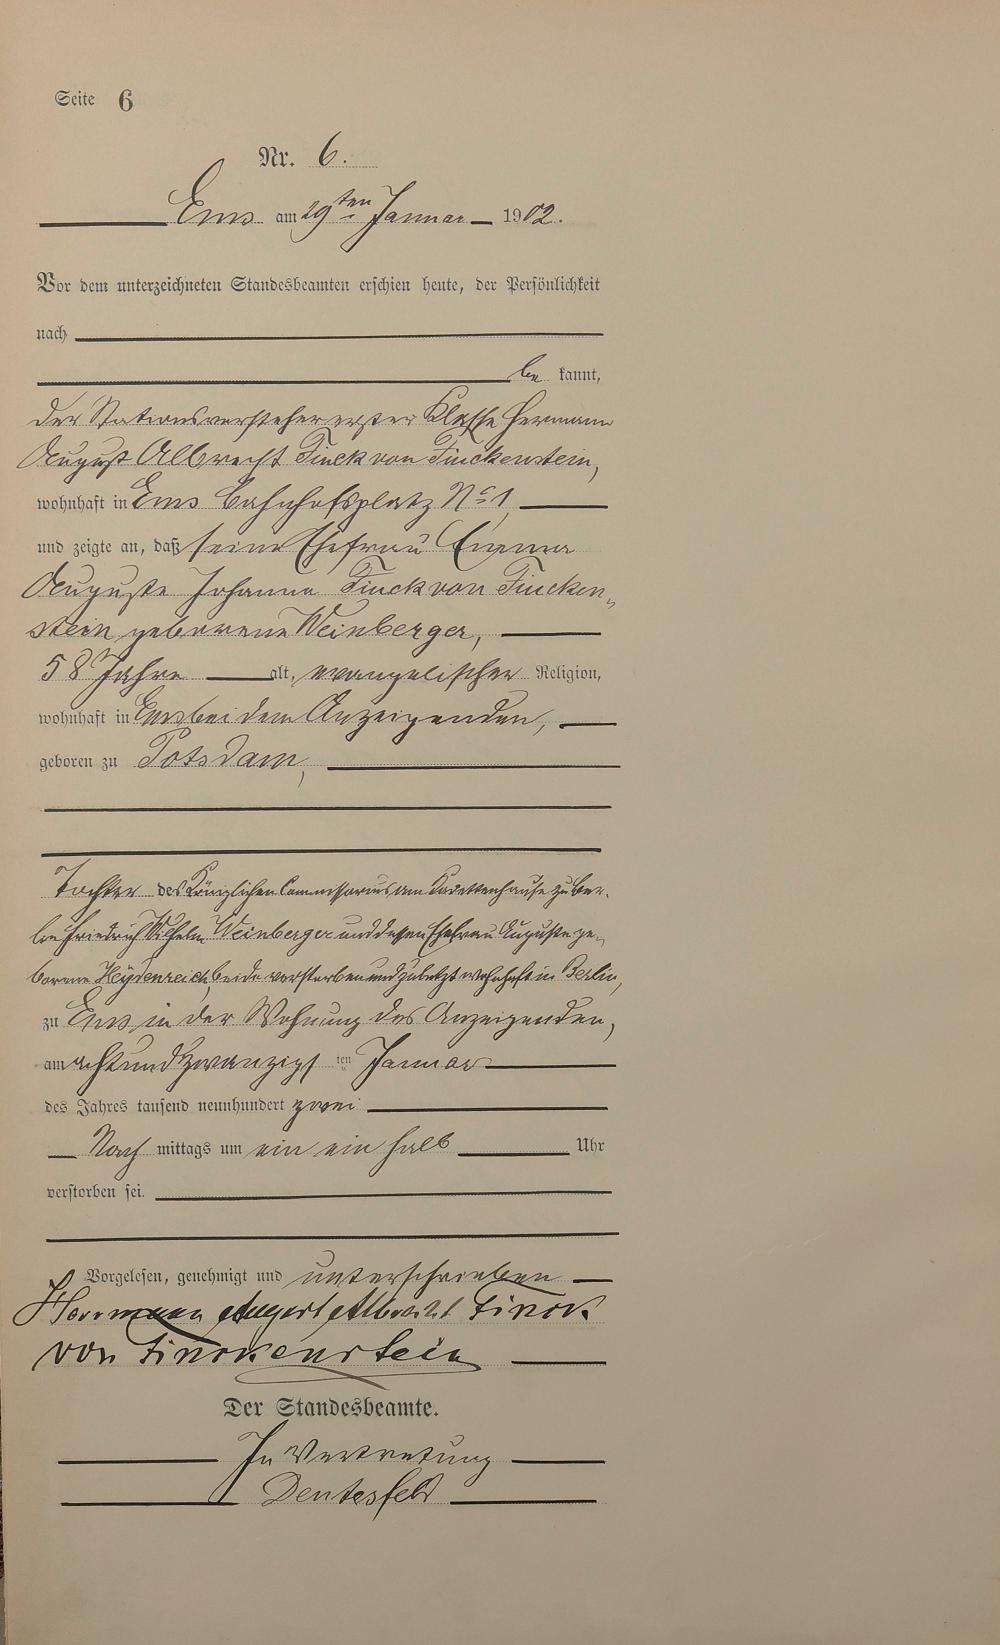 Seite 6
Nr. 6.
Ems am 29ten Januar 1902.
Vor dem unterzeichneten Standesbeamten erschien heute, der Persönlichkeit
nach
be kannt,
der Stationsvorsteher erster Klasse Hermann
August Albrecht Finck von Finckenstein,
wohnhaft in Ems Bahnhofsplatz No 1,
und zeigte an, daß seine Ehefrau Emma
Auguste Johanna Finck von Fincken„
stein geborene Weinberger,
58 Jahre alt, evangelischer Religion,
wohnhaft in Ems bei dem Anzeigenden,
geboren zu Potsdam,
Tochter des Königlichen Commissarius am Kadettenhause zu Ber-
lin Friedrich Wilhelm Weinberger und dessen Ehefrau Auguste ge„
borene Heydenreich, beide verstorben und zuletzt wohnhaft in Berlin,
zu Ems, in der Wohnung des Anzeigenden,
am achtundzwanzigs ten Januar
des Jahres tausend neunhundert zwei
Nach mittags um ein ein halb Uhr
verstorben sei.
Vorgelesen, genehmigt und unterschrieben
Herrmann August Albrecht Finck
von Finckenstein
Der Standesbeamte.
In Vertretung